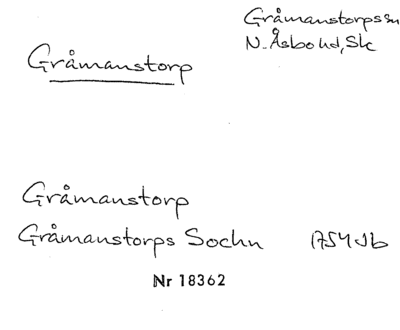 Gråmanstorpssn
Gråmanstorp
N. Åsbo hd, Sk
Gråmanstorp
Gråmanstorps Sochn 1754 Jb
Nr 18362